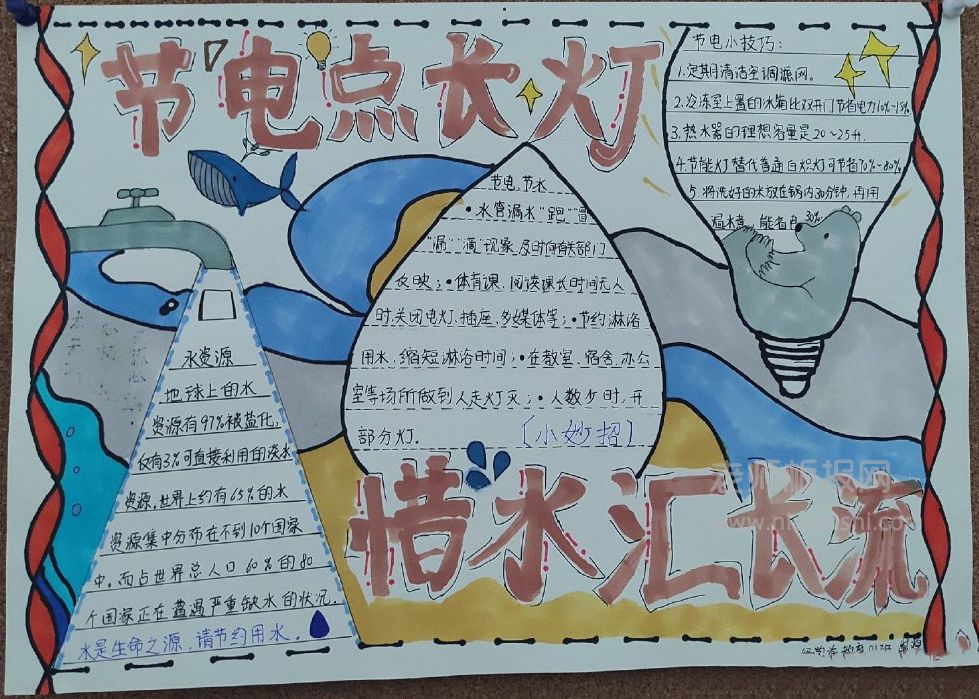 节电点长灯
节电小技巧：
1.定期清洁空调滤网。
2.冷冻室上置的冰箱比双开门节省电力10%-15%
3.热水器的理想容量是20~25升.
4.节能灯替代普通白炽灯可节省70%-80%
5.将洗好的冰放在锅内30分钟，再用
30%
节电、节水
•水管漏水“跑”“冒
“漏”“滴”现象，及时向有关部门
反映；•体育课、阅读课长时间无人
时，关闭电灯、插座、多媒体等；•节约淋浴
用水，缩短淋浴时间；•在教室、宿舍、办公
室等场所做到人走灯灭；•人数少时，开
部分灯.
【小妙招】
水资源
地球上的水
资源有97%被盐化，
仅有3%可直接利用的淡水
资源，世界上约有65%的水
资源集中分布在不到10个国家
中，而占世界总人口60%的80
个国家正在遭遇严重缺水的状况.
水是生命之源，请节约用水.
惜水汇长流